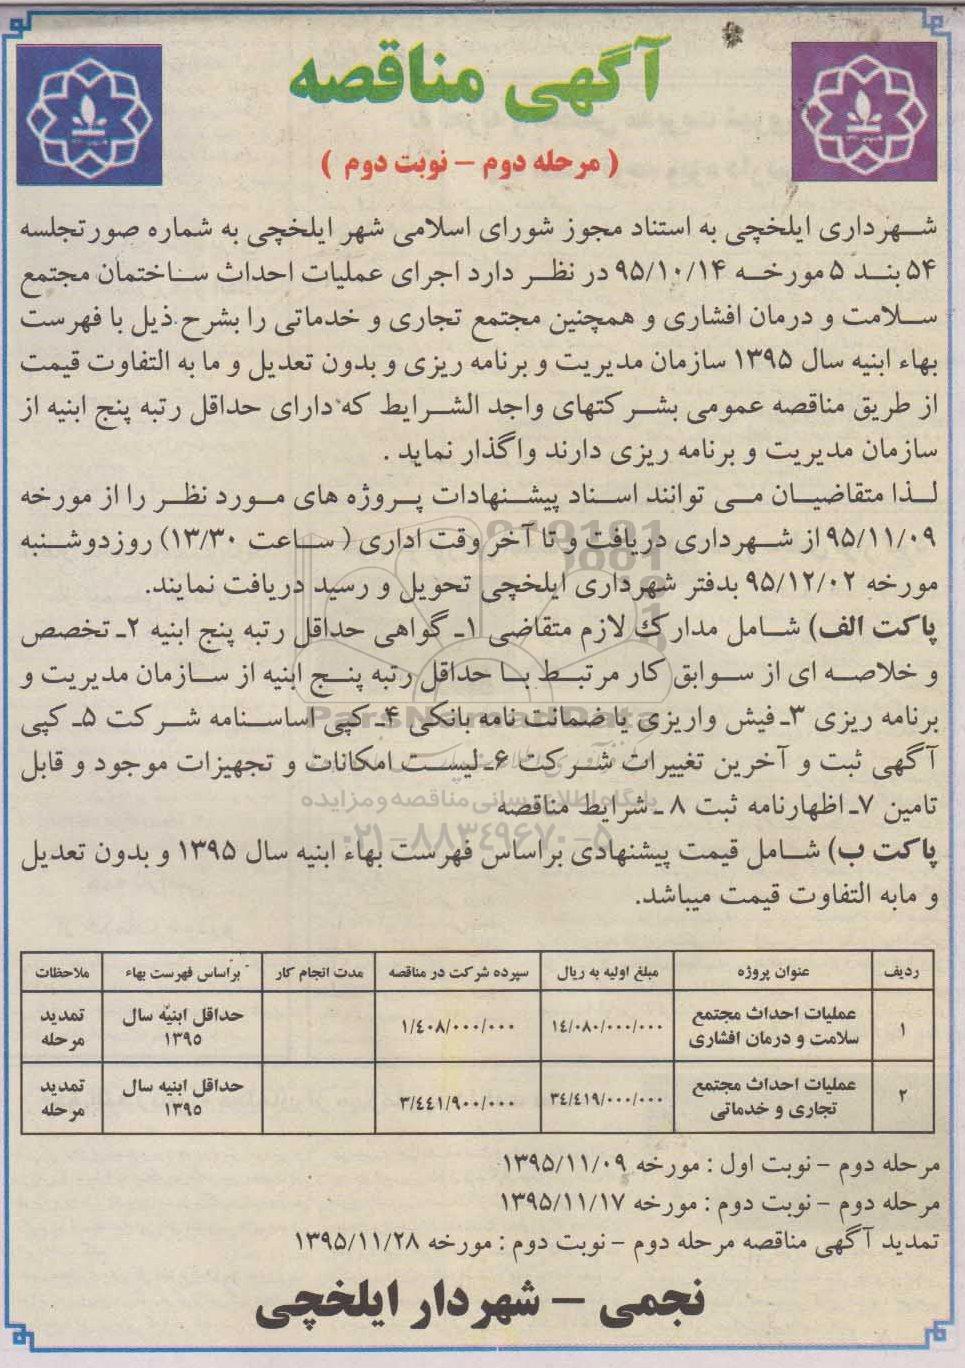 آگهی مناقصه
( مرحله دوم – نوبت دوم )
شهرداری ایلخچی به استناد مجوز شورای اسلامی شهر ایلخچی به شماره صورتجلسه
۵۴ بند ۵ مورخه ۹۵/۱۰/۱۴ در نظر دارد اجرای عملیات احداث ساختمان مجتمع
سلامت و درمان افشاری و همچنین مجتمع تجاری و خدماتی را بشرح ذیل با فهرست
بهاء ابنیه سال ۱۳۹۵ سازمان مدیریت و برنامه ریزی و بدون تعدیل و ما به التفاوت قیمت
از طریق مناقصه عمومی بشرکتهای واجد الشرایط که دارای حداقل رتبه پنج ابنیه از
سازمان مدیریت و برنامه ریزی دارند واگذار نماید .
لذا متقاضیان می توانند اسناد پیشنهادات پروژه های مورد نظر را از مورخه
۹۵/۱۱/۰۹ از شهرداری دریافت و تا آخر وقت اداری ( ساعت ۱۳/۳۰) روز دوشنبه
مورخه ۹۵/۱۲/۰۲ بدفتر شهرداری ایلخچی تحویل و رسید دریافت نمایند.
پاکت الف) شامل مدارک لازم متقاضی ۱ـ گواهی حداقل رتبه پنج ابنیه ۲ـ تخصص
و خلاصه ای از سوابق کار مرتبط با حداقل رتبه پنج ابنیه از سازمان مدیریت و
برنامه ریزی ۳ـ فیش واریزی یا ضمانت نامه بانکی ۴ـ کپی اساسنامه شرکت ۵ـ کپی
آگهی ثبت و آخرین تغییرات شرکت ۶ـ لیست امکانات و تجهیزات موجود و قابل
تامین ۷ـ اظهارنامه ثبت ۸ ـ شرایط مناقصه
پاکت ب) شامل قیمت پیشنهادی براساس فهرست بهاء ابنیه سال ۱۳۹۵ و بدون تعدیل
و مابه التفاوت قیمت میباشد.
ParsNamadData
پایگاه اطلاع رسانی مناقصه و مزایده
۰۲۱-۸۸۳۴۹۶۷۰-۵
ردیف عنوان پروژه مبلغ اولیه به ریال سپرده شرکت در مناقصه مدت انجام کار براساس فهرست بهاء ملاحظات
۱ عملیات احداث مجتمع سلامت و درمان افشاری ۱٤/۰۸۰/۰۰۰/۰۰۰ ۱/٤۰۸/۰۰۰/۰۰۰ حداقل ابنیّه سال ۱۳۹۵ تمدید مرحله
۲ عملیات احداث مجتمع تجاری و خدماتی ۳٤/٤۱۹/۰۰۰/۰۰۰ ۳/٤٤۱/۹۰۰/۰۰۰ حداقل ابنیه سال ۱۳۹۵ تمدید مرحله
مرحله دوم – نوبت اول : مورخه ۱۳۹۵/۱۱/۰۹
مرحله دوم – نوبت دوم : مورخه ۱۳۹۵/۱۱/۱۷
تمدید آگهی مناقصه مرحله دوم – نوبت دوم : مورخه ۱۳۹۵/۱۱/۲۸
نجمی – شهردار ایلخچی